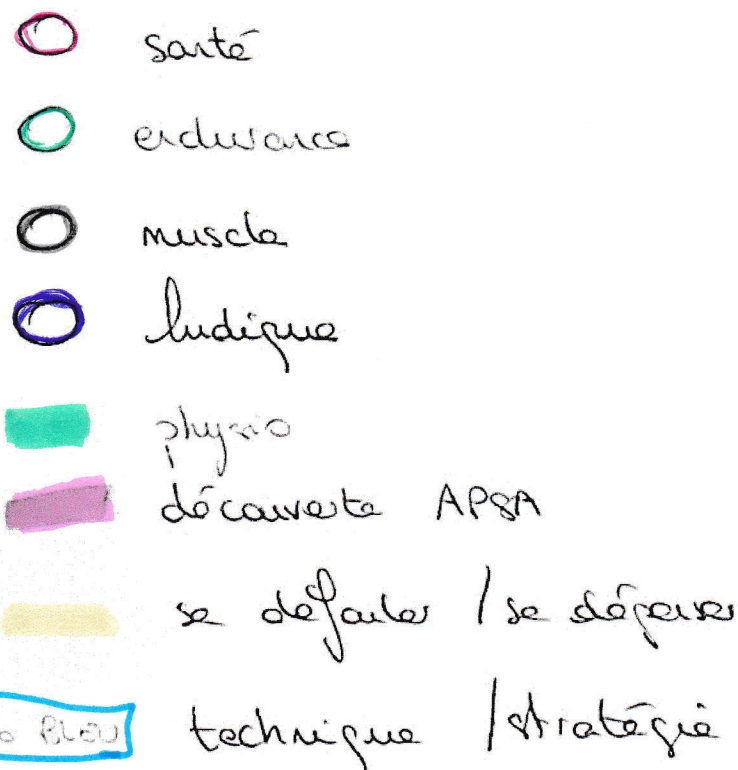 santé
endurance
muscle
ludique
physio
découverte APSA
se défouler / se dépenser
BLEU technique / stratégie